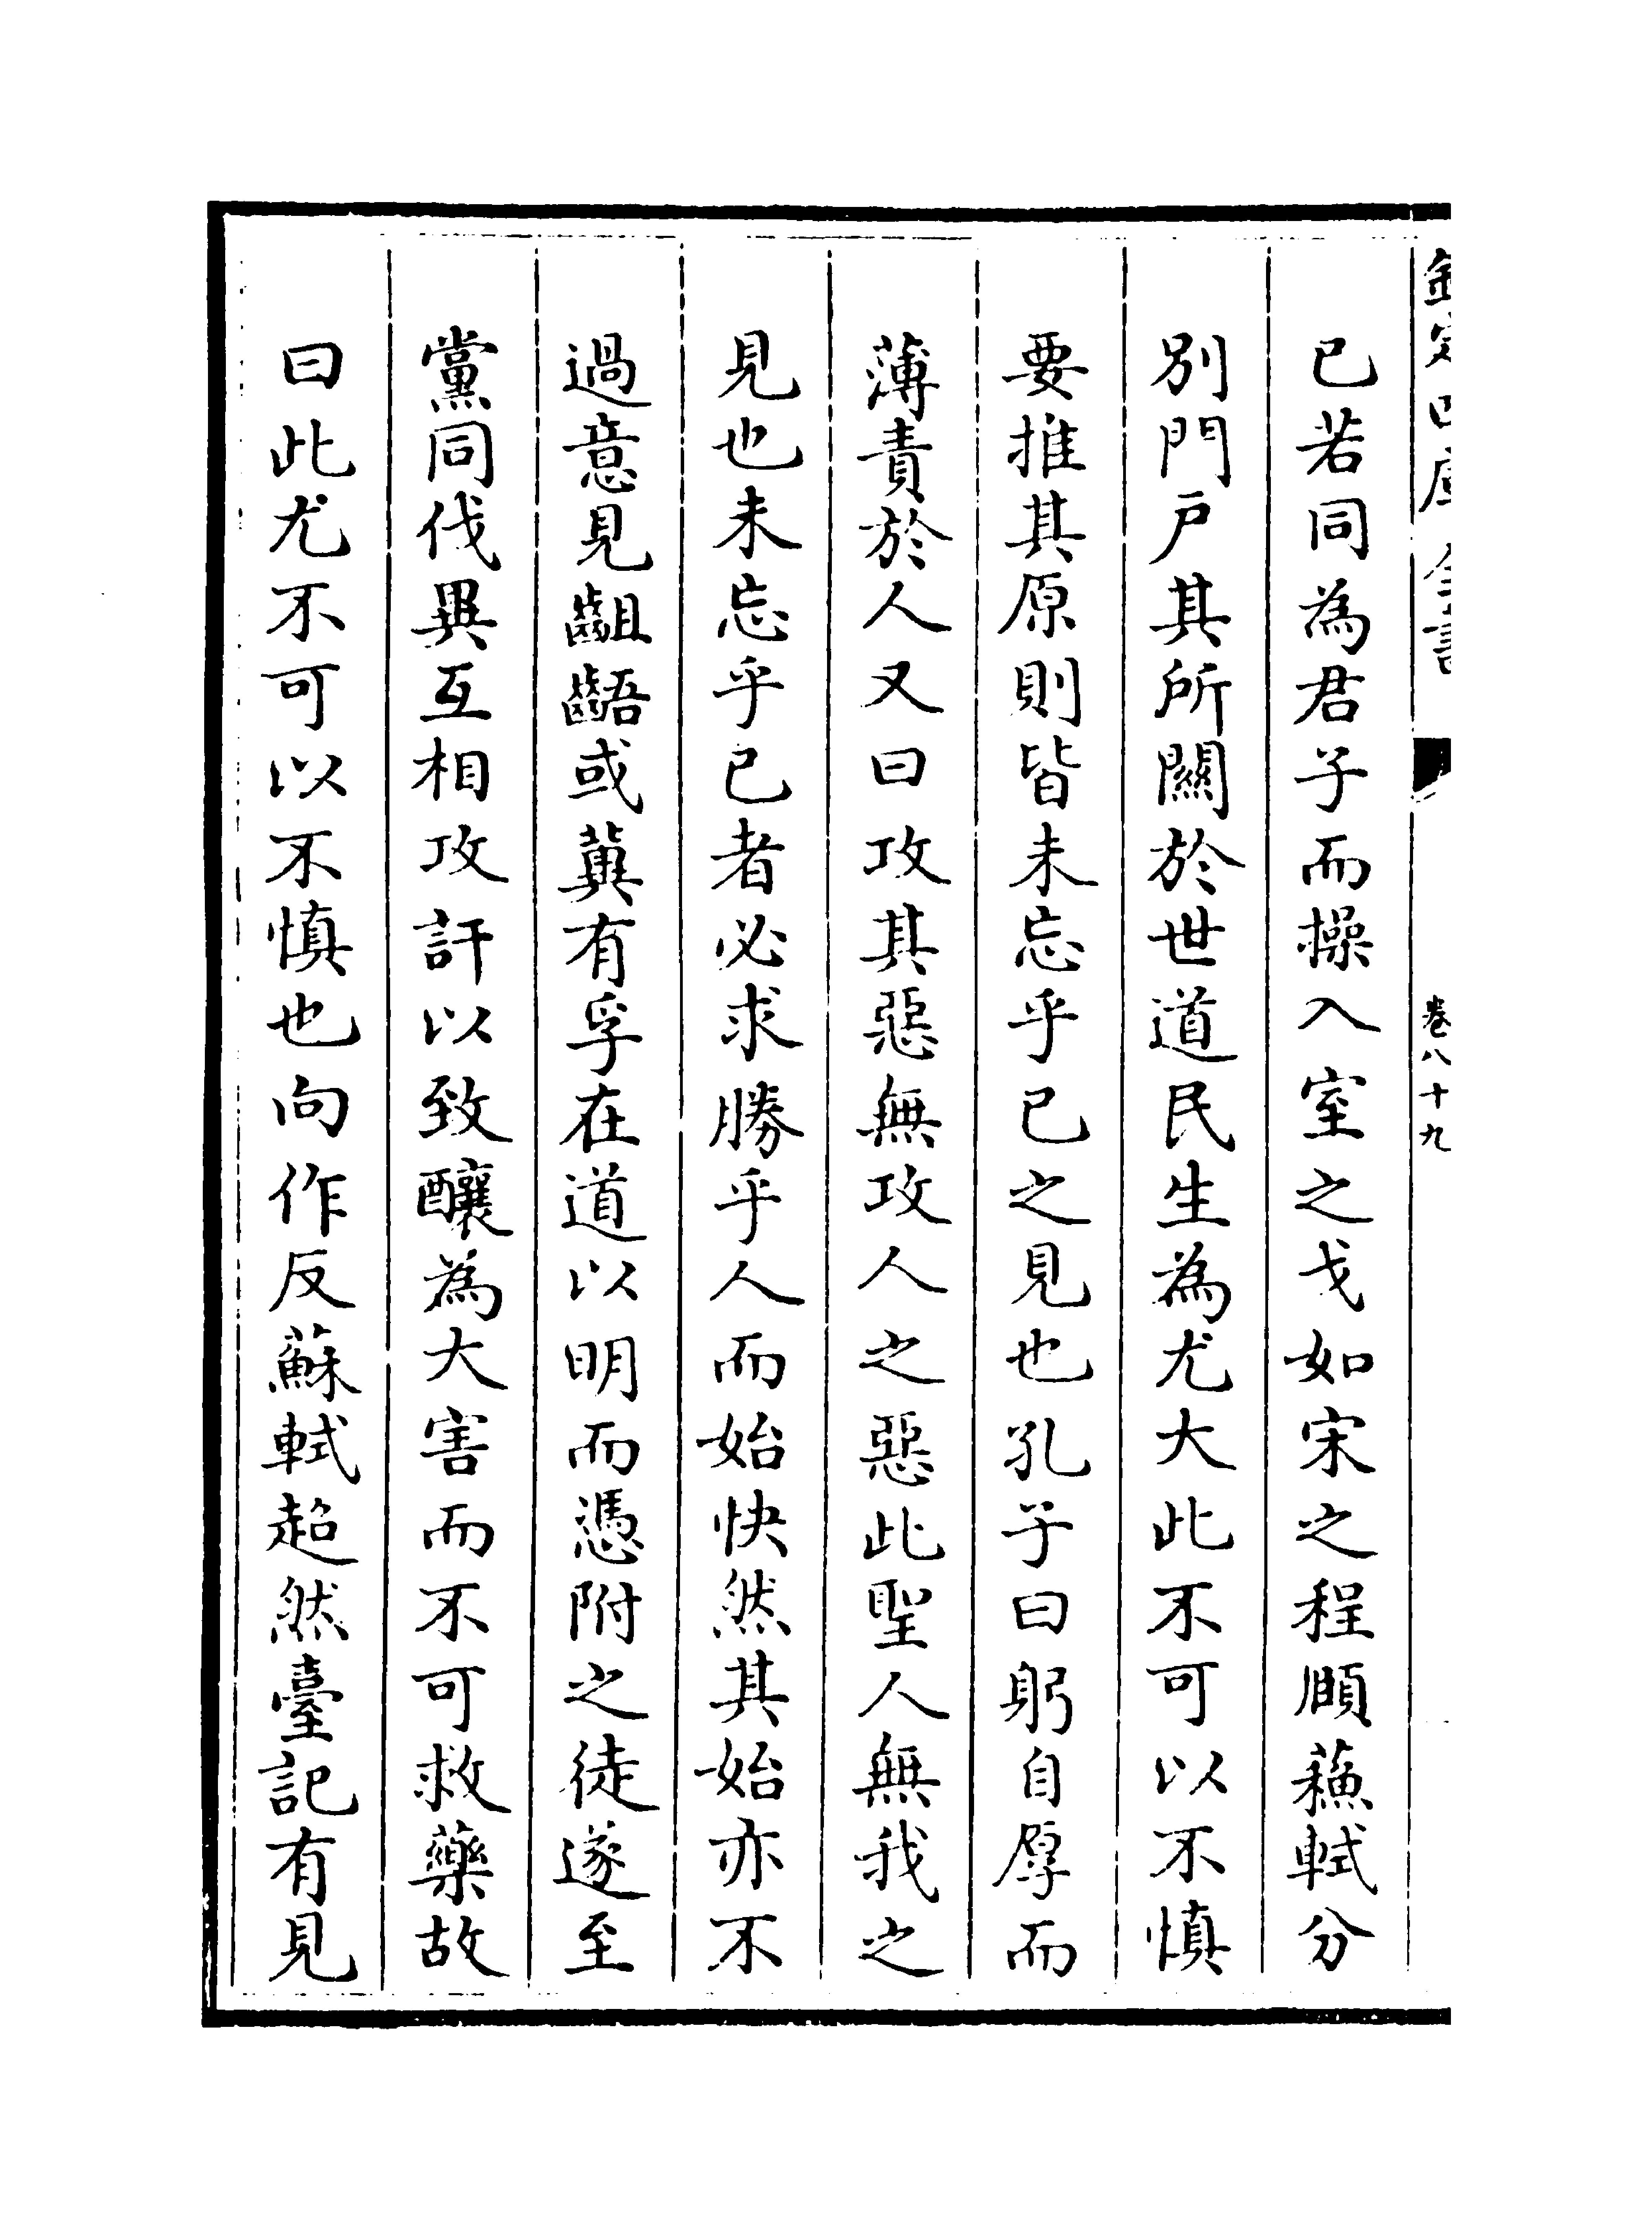 欽定四庫全書
卷八十九
已若同為君子而操入室之戈如宋之程頥蘓軾分
別門戸其所闗於世道民生為尤大此不可以不慎
要推其原則皆未忘乎已之見也孔子曰躬自厚而
薄責於人又曰攻其惡無攻人之惡此聖人無我之
見也未忘乎已者必求勝乎人而始快然其始亦不
過意見齟齬或冀有孚在道以明而憑附之徒遂至
黨同伐異互相攻訐以致釀為大害而不可救藥故
曰此尤不可以不慎也向作反蘇軾超然臺記有見